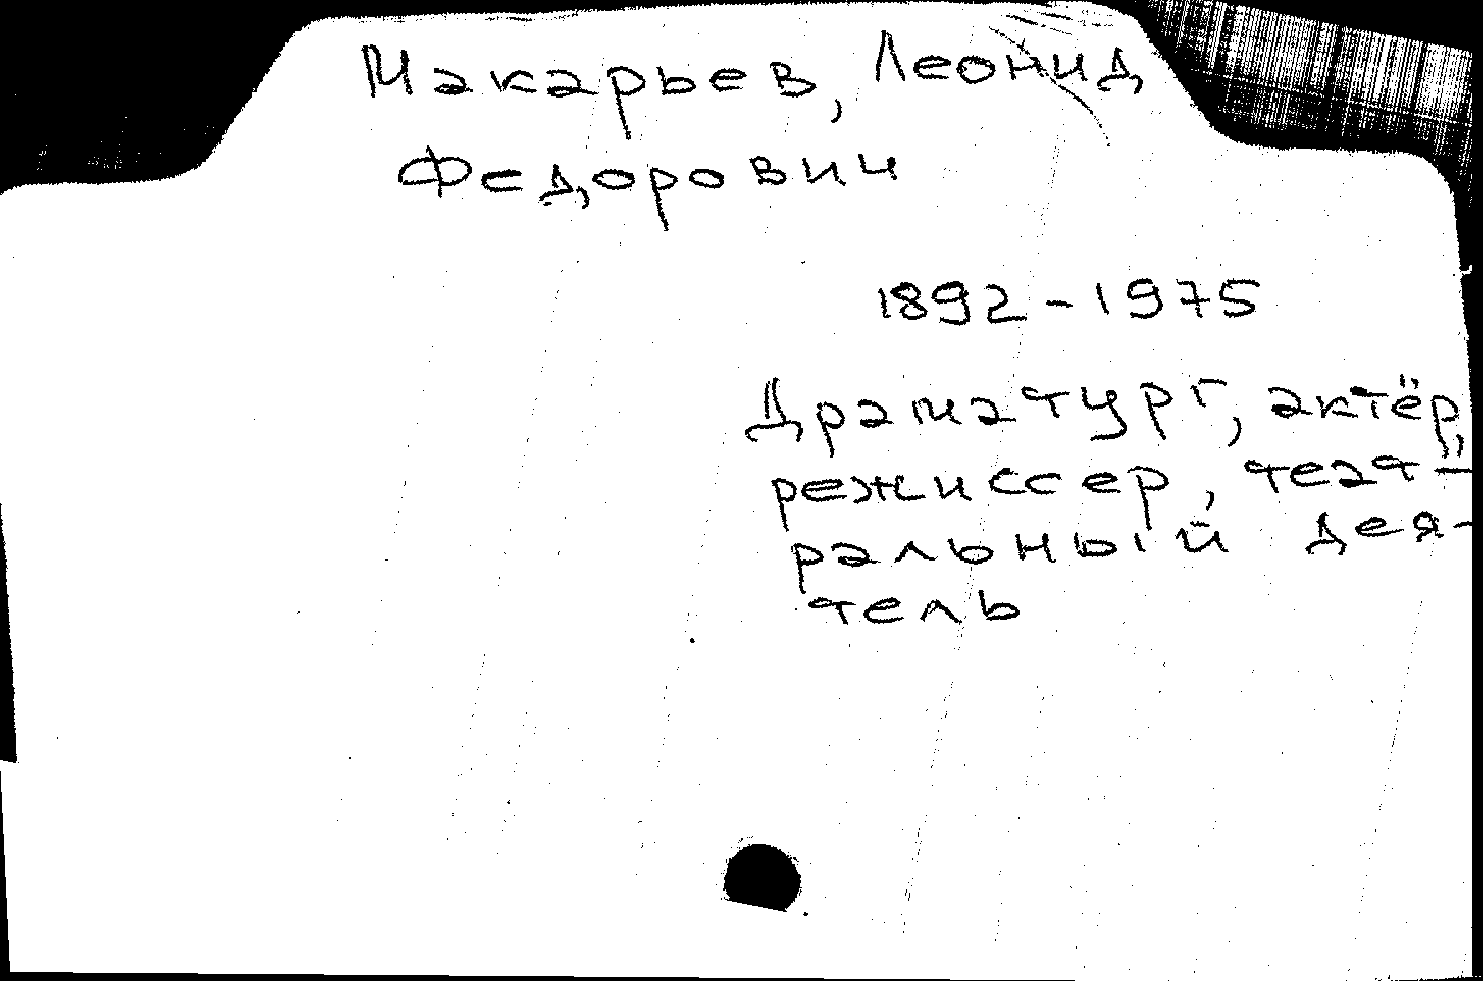 Макарьев, Леонид
Федорович
1892-1975
Драматург, актёр,
режиссер, театр-
ральный дея-
тель